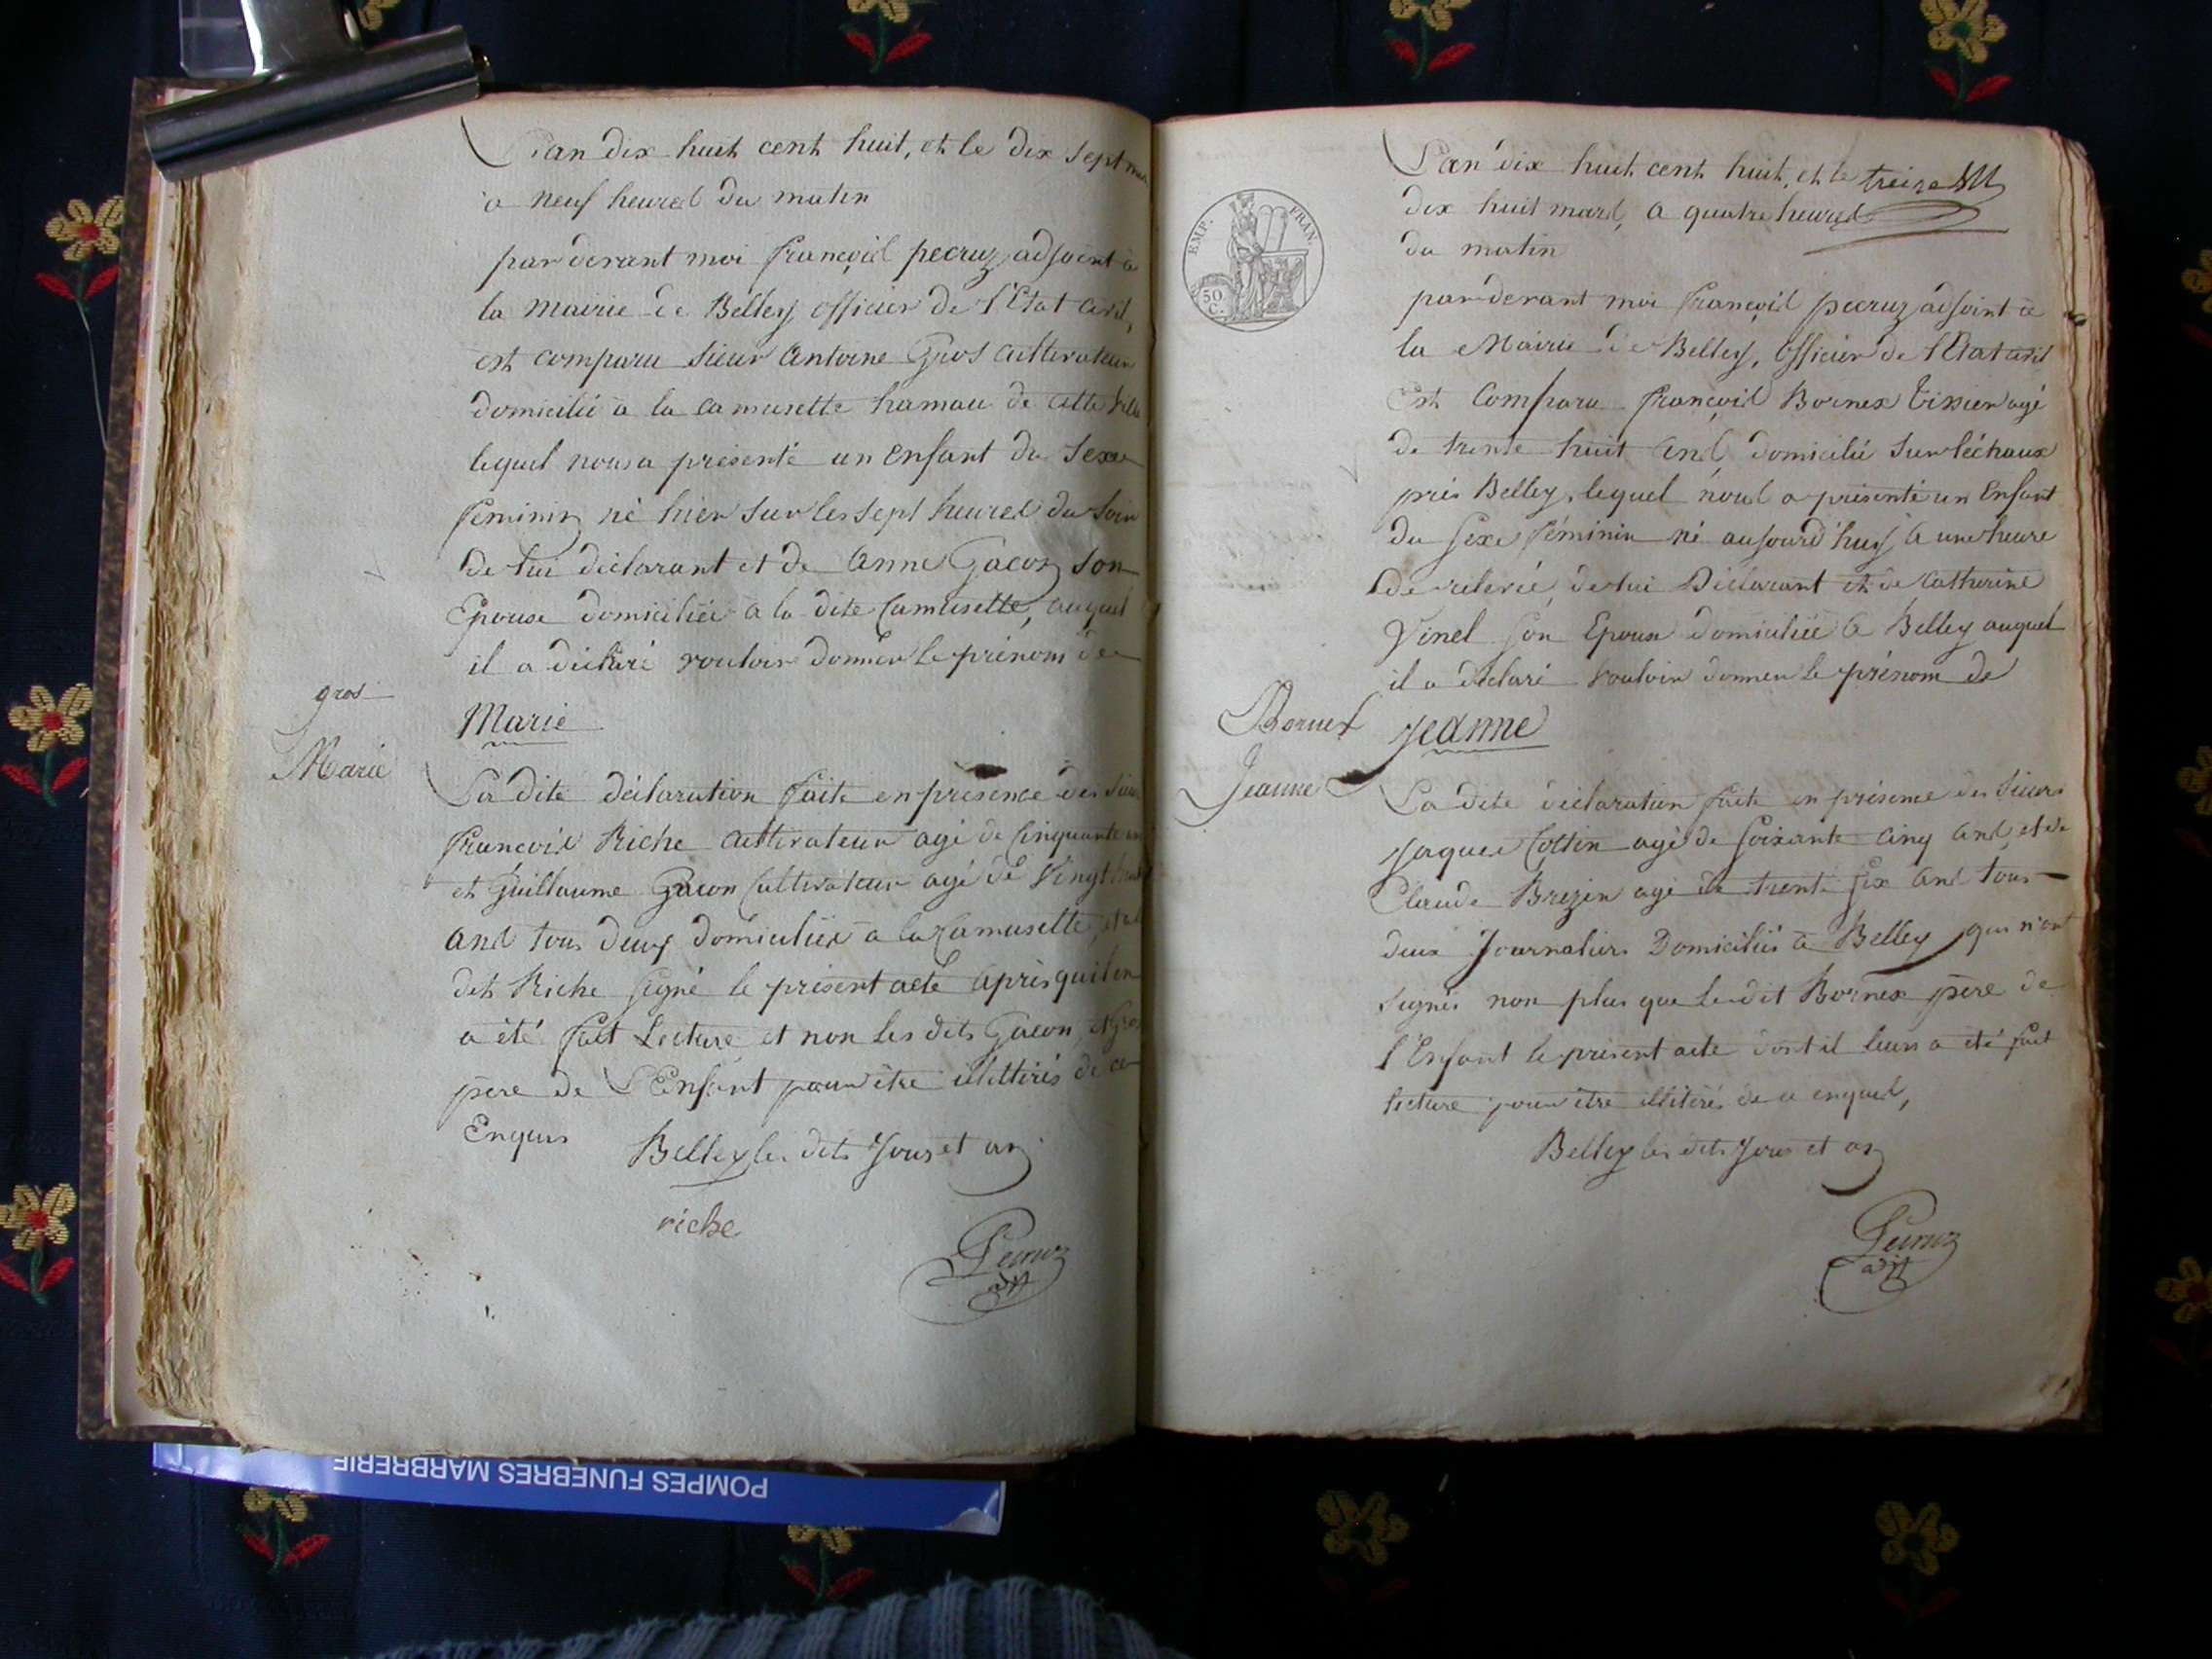 L'an dix huit cent huit, et le dix sept mars
a neuf heures du matin
par devant moi françois pecruz adjoint à
la mairie de Belley officier de l'Etat civil,
est comparu Sieur Antoine Gros cultivateur
domicilié à la camusette hamau de cette ville
lequel nous a présenté un enfant du Sexe
féminin né hier sur les sept heures du soir
de lui déclarant et de Anne Gacon son
Epouse domiciliée à la dite Camusette, auquel
il a déclaré vouloir donner le prénom de
gros
Marie
Marie
La dite déclaration faite en présence des Sieurs
françois Riche cultivateur agé de Cinquante ans
et Guillaume Gacon Cultivateur agé de Vingt
ans tous deux domiciliés à la Camusette, et le
dit Riche Signé le présent acte après qu'il en
a été fait Lecture et non les dits Gacon, et Gros
père de L'Enfant pour être illittérés de ce
Enquis
Belley les dits Jour et an
riche
Pecruz
adjt
EMP. FRAN.
50
C.
L'an dix huit cent huit, et le treize
dix huit mars, a quatre heures
du matin
par devant moi françois pecruz adjoint à
la Mairie de Belley, officier de l'Etat civil
Est Comparu françois Bornex tissier agé
de trente huit ans, domicilié Sur léchaux
près Belley, lequel nous a présenté un Enfant
du Sexe féminin né aujourd'huy à une heure
de relevée, de lui Déclarant et de Catherine
Vinel son Epouse domiciliée à Belley auquel
il a déclaré vouloir donner le prénom de
Bornex
Jeanne
Jeanne
La dite déclaration faite en présence des Sieurs
Jaques Cottin agé de Soixante Cinq ans, et de
Claude Brezin agé de trente Six ans tous
deux Journaliers Domiciliés à Belley qui n'ont
Signés non plus que le dit Bornex père de
l'Enfant le présent acte dont il leurs a été fait
lecture pour être illitérés de ce enquis,
Belley les dits Jour et an
Pecruz
adjt
POMPES FUNEBRES MARBRERIE